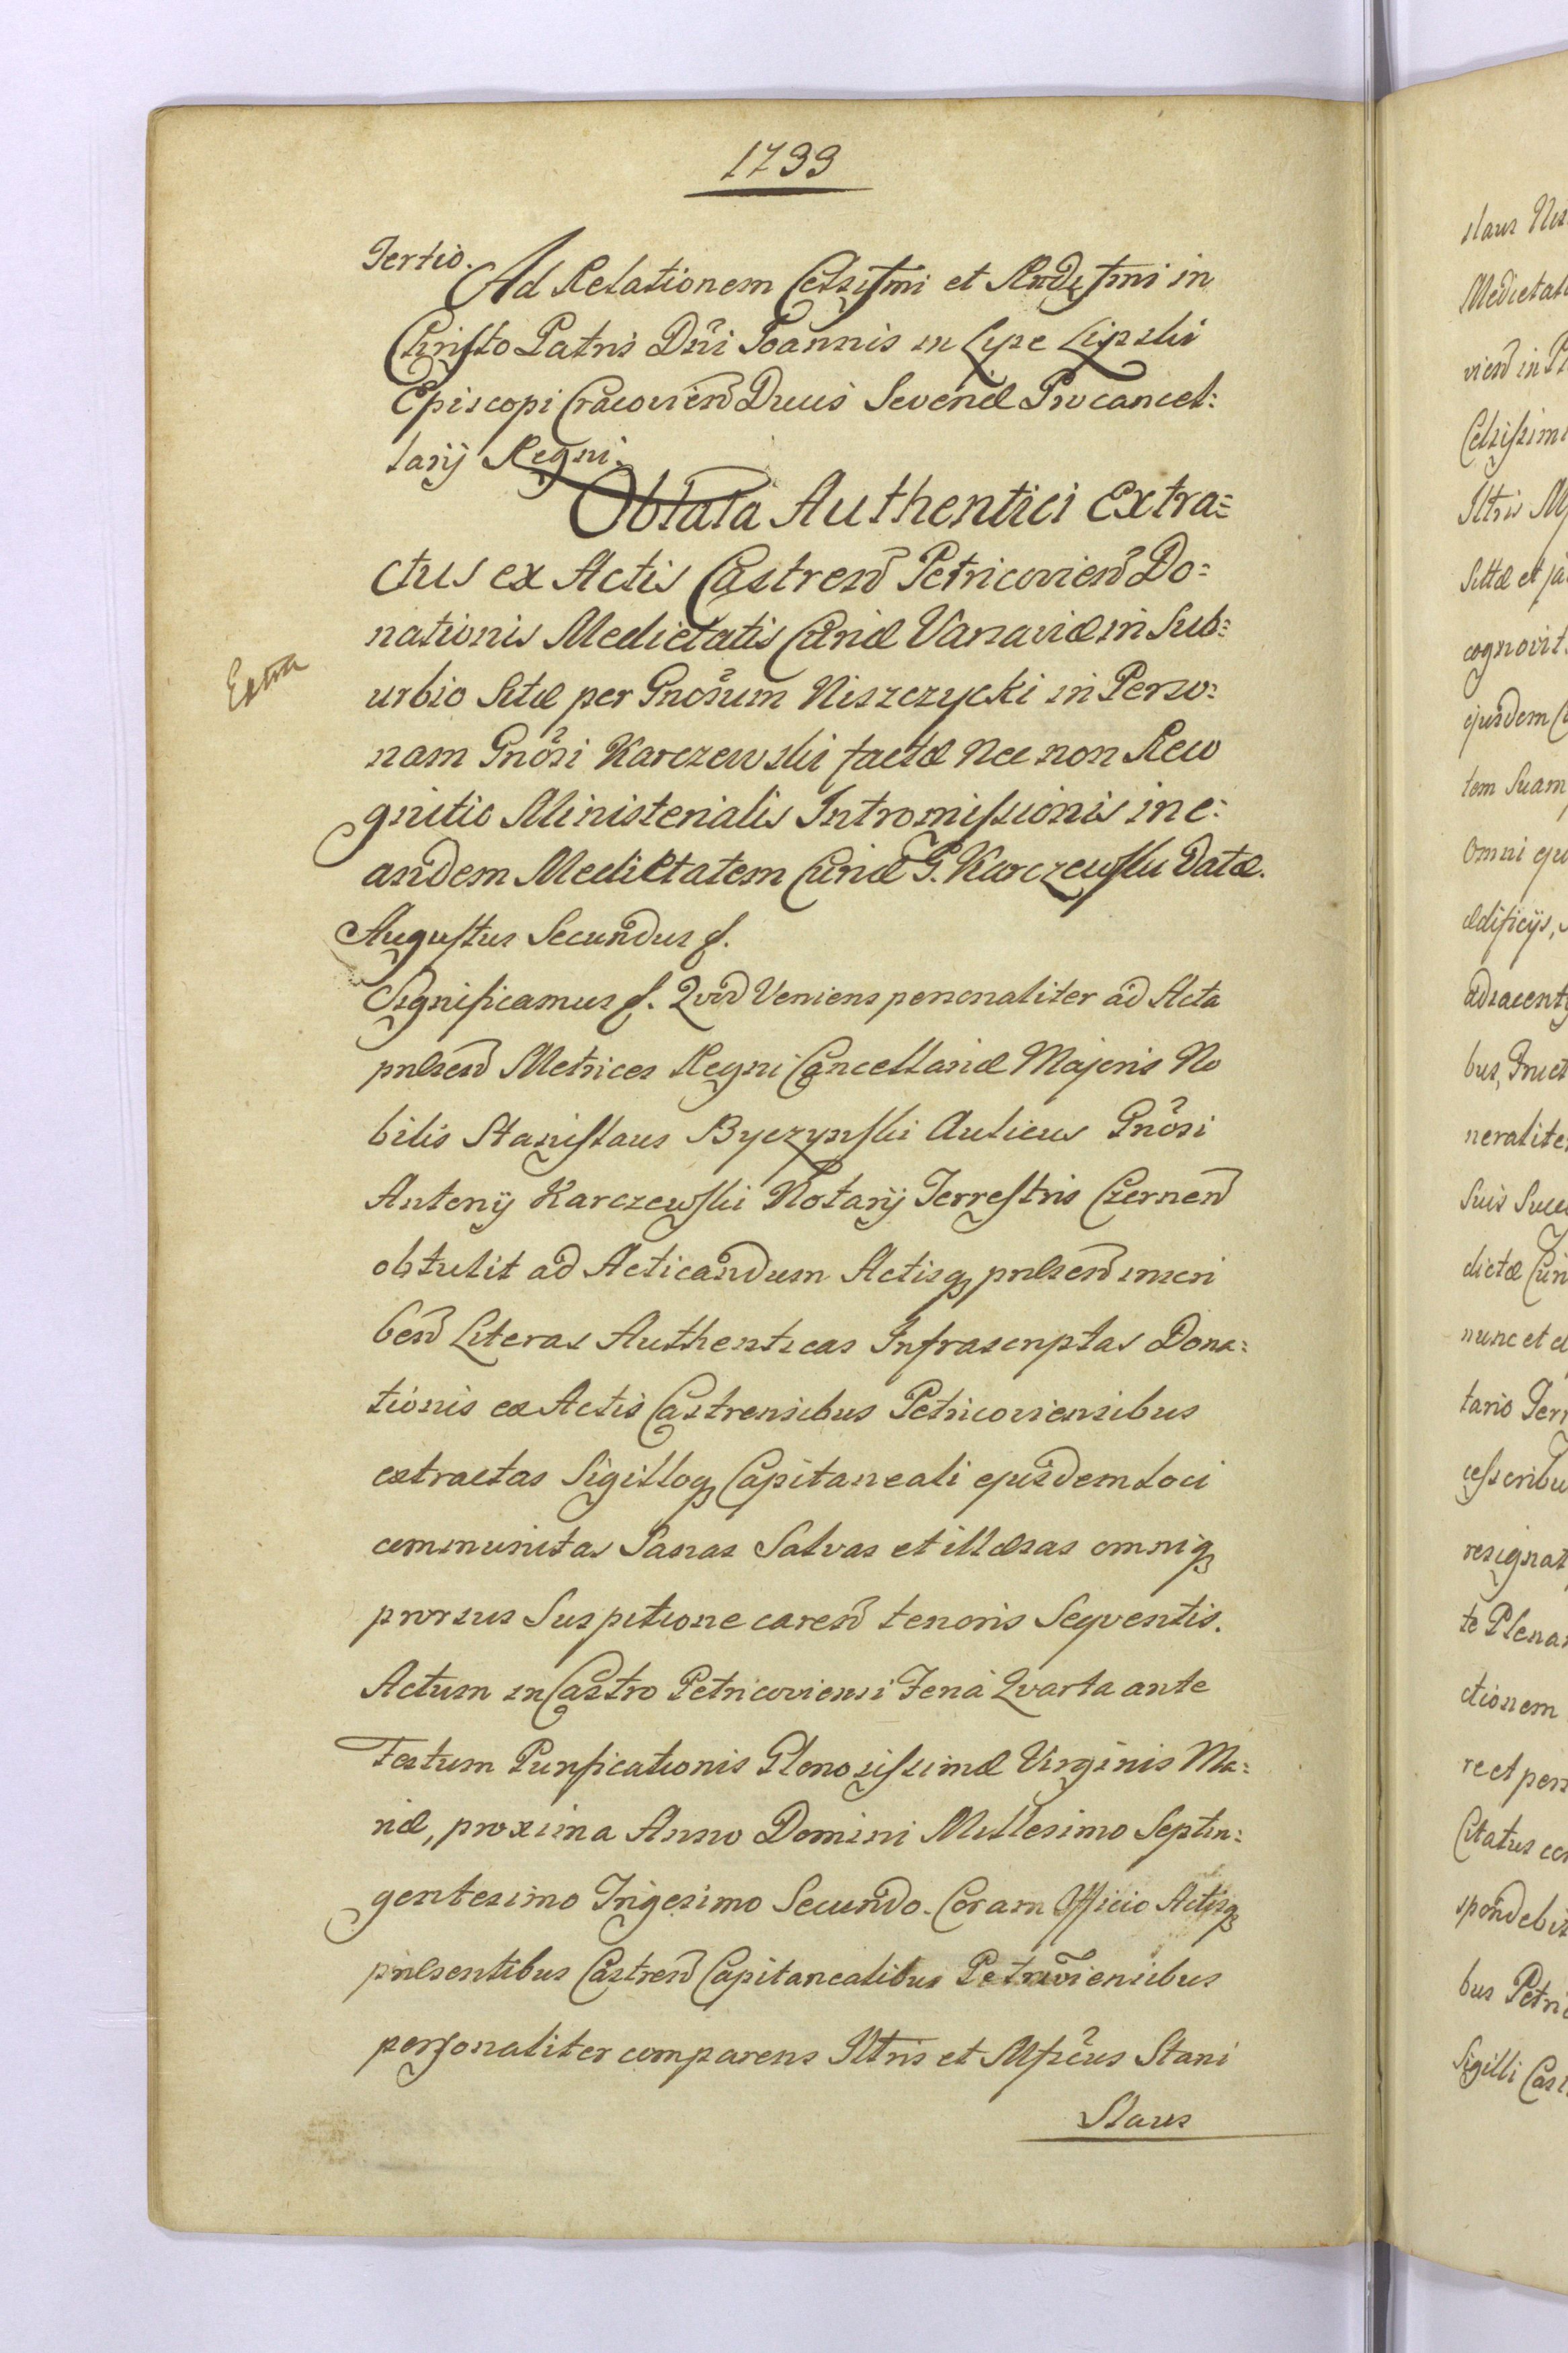 1733
Tertio.
Ad Relationem Celsissmi et Rndissmi in
Christo Patris Dñi Joannis in Lipe Lipski
Episcopi Cracovien Ducis Severiæ Procancel=
larij Regni.
Oblata Authentici Extra=
ctus ex Actis Castren Petricovien Do=
nationis Medietatis Curiæ Varsaviæ in Sub=
Extra
urbio Sitæ per Gnosum Niszczycki in Perso=
nam Gnosi Karczewski factæ Nec non Reco
gnitio Ministerialis Intromissionis in e=
andem Medietatem Curiæ G. Karczewski Datæ.
Augustus Secundus &.
Significamus &. Qvod Veniens personaliter ad Acta
præsen Metrices Regni Cancellariæ Majoris No
bilis Stanislaus Byczynski Aulicus Gnosi
Antonij Karczewski Notarij Terrestris Czernen
obtulit ad Acticandum Actisq præsen inscri
ben Literas Authenticas Infrascriptas Dona=
tionis ex Actis Castrensibus Petricoviensibus
extractas Sigilloq Capitaneali ejusdem Loci
communitas Sanas Salvas et illæsas omniq
prorsus Suspitione caren tenoris Seqventis.
Actum in Castro Petricoviensi Feria Qvarta ante
Festum Purificationis Gloriosissimæ Virginis Ma=
riæ, proxima Anno Domini Millesimo Septin=
gentesimo Trigesimo Secundo. Coram Officio Actisq
præsentibus Castren Capitanealibus Petricoviensibus
personaliter comparens Illtris et Mficus Stani
slaus
slaus Nis
Medietat
vien in P
Celsissimi
Illtris M
Sittæ et ja
cognovit
ejusdem C
tem Suam
Omni qu
ædificijs,
adjacent
bus, Fruct
neralite
Suis Succ
dictæ Curi
nunc et
tario Terr
cessoribu
resignat
te Plenar
ctionem
re et pers
Citatus
spondebit
bus Petric
Sigilli Cas